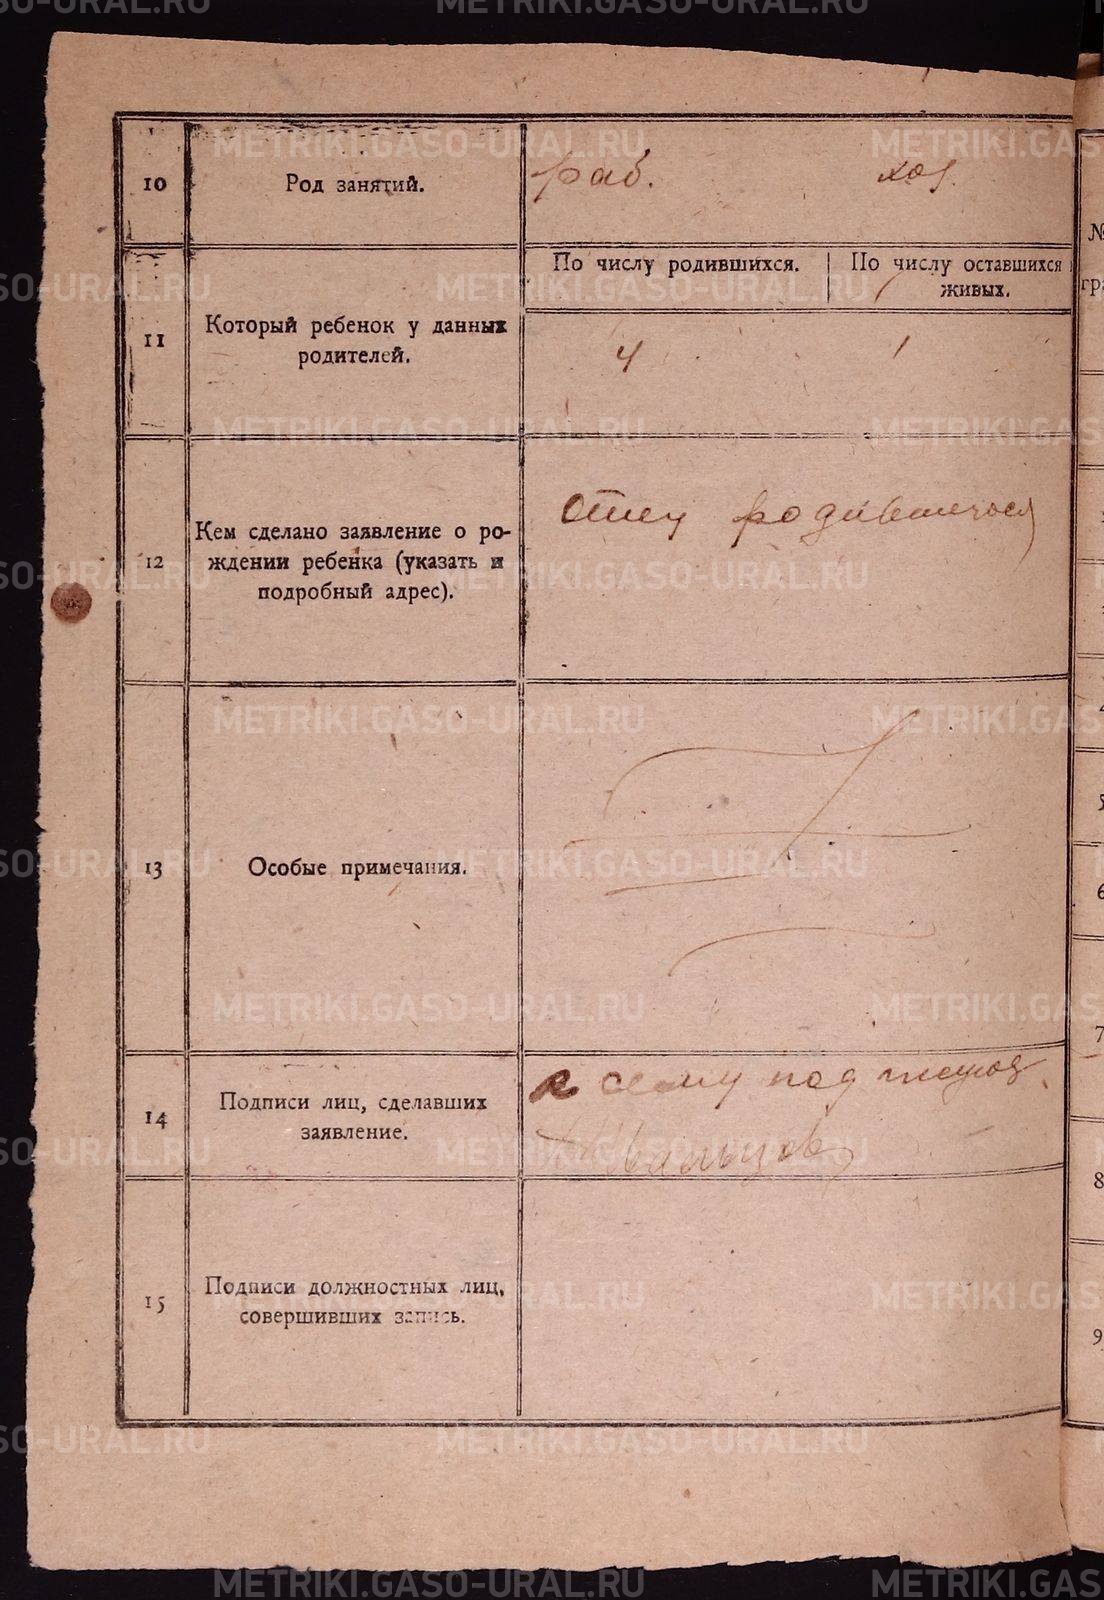 METRIKI.GASO-URAL.RU
10
Род занятий.
раб.
хоз.
11
Который ребенок у данных
родителей.
По числу родившихся.
По числу оставшихся
живых.
4
1
12
Кем сделано заявление о ро-
ждении ребенка (указать и
подробный адрес).
Отец родившегося
13
Особые примечания.
14
Подписи лиц, сделавших
заявление.
к сему под
15
Подписи должностных лиц,
совершивших запись.
№
гра
5
6
7
8
9